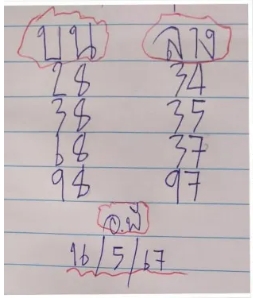 บน ล่าง
28 34
38 35
68 37
98 97
อ.พี
16/5/67